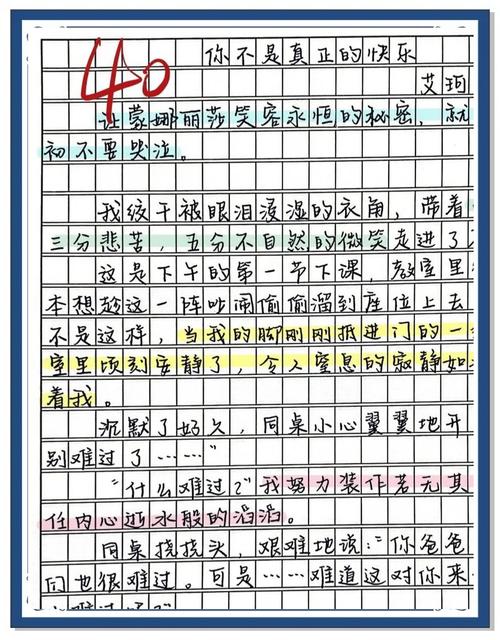 你不是真正的快乐
40
艾珂
让蒙娜丽莎笑容永恒的秘密，就
初不要哭泣。
我绞干被眼泪浸湿的衣角，带着
三分悲苦，五分不自然的微笑走进了
这是下午的第一节下课，教室里
本想趁这一阵吵闹偷偷溜到座位上去
不是这样，当我的脚刚刚抵进门的一
室里顷刻安静了，令人窒息的寂静如
着我。
沉默了好久，同桌小心翼翼地开
别难过了……”
“什么难过？”我努力装作若无其
任内心逝水般的滔滔。
同桌挠挠头，艰难地说：“你爸爸
同也很难过。可是……难道这对你来